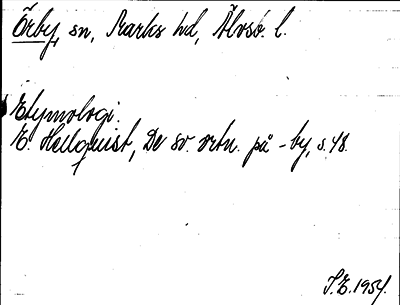 Örby, sn, Marks hd, Älvsb. l.
Etymologi.
E. Hellquist, De sv. ortn. på -by, s. 48.
I.E. 1954.